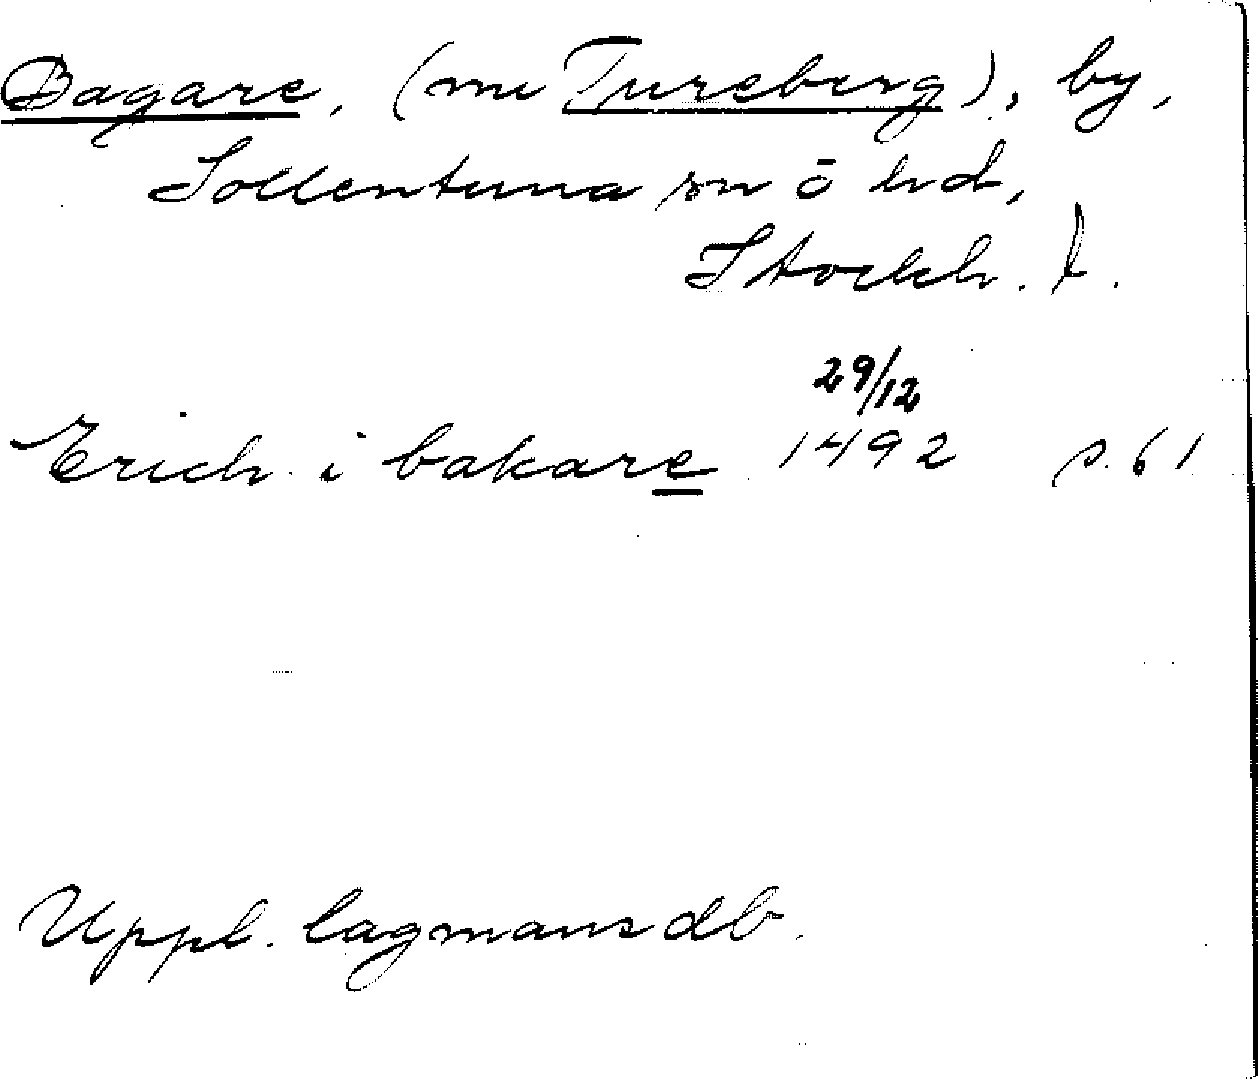 Bagare, (nu Tureberg), by,
Sollentuna sn o hd,
Stockh. l.
29/12
Erich i bakare 1492 s. 61
Uppl. lagmansdb.